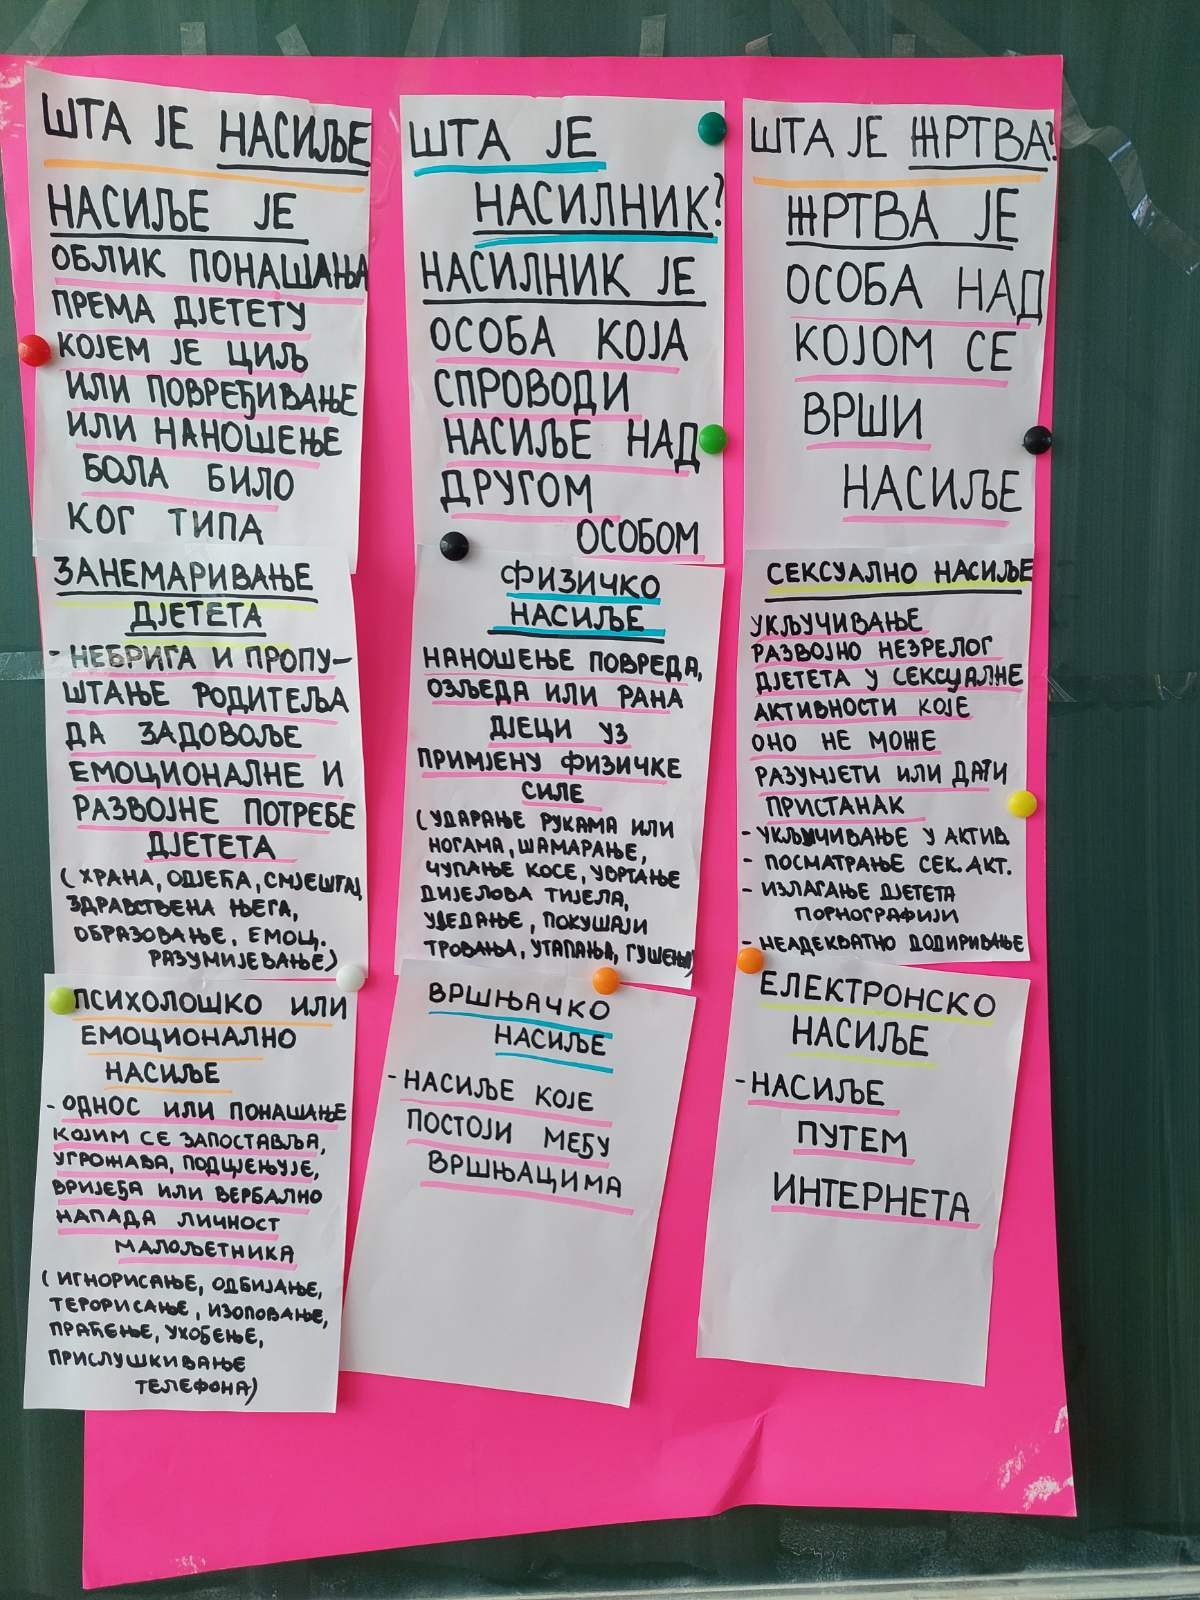 ШТА ЈЕ НАСИЉЕ
НАСИЉЕ ЈЕ
ОБЛИК ПОНАШАЊА
ПРЕМА ДЈЕТЕТУ
КОЈЕМ ЈЕ ЦИЉ
ИЛИ ПОВРЕЂИВАЊЕ
ИЛИ НАНОШЕЊЕ
БОЛА БИЛО
КОГ ТИПА
ШТА ЈЕ
НАСИЛНИК?
НАСИЛНИК ЈЕ
ОСОБА КОЈА
СПРОВОДИ
НАСИЉЕ НАД
ДРУГОМ
ОСОБОМ
ШТА ЈЕ ЖРТВА?
ЖРТВА ЈЕ
ОСОБА НАД
КОЈОМ СЕ
ВРШИ
НАСИЉЕ
ЗАНЕМАРИВАЊЕ
ДЈЕТЕТА
- НЕБРИГА И ПРОПУ-
ШТАЊЕ РОДИТЕЉА
ДА ЗАДОВОЉЕ
ЕМОЦИОНАЛНЕ И
РАЗВОЈНЕ ПОТРЕБЕ
ДЈЕТЕТА
(ХРАНА, ОДЈЕЋА, СМЈЕШТАЈ,
ЗДРАВСТВЕНА ЊЕГА,
ОБРАЗОВАЊЕ, ЕМОЦ.
РАЗУМИЈЕВАЊЕ)
ФИЗИЧКО
НАСИЉЕ
НАНОШЕЊЕ ПОВРЕДА,
ОЗЉЕДА ИЛИ РАНА
ДЈЕЦИ УЗ
ПРИМЈЕНУ ФИЗИЧКЕ
СИЛЕ
(УДАРАЊЕ РУКАМА ИЛИ
НОГАМА, ШАМАРАЊЕ,
ЧУПАЊЕ КОСЕ, УВРТАЊЕ
ДИЈЕЛОВА ТИЈЕЛА,
УЈЕДАЊЕ, ПОКУШАЈИ
ТРОВАЊА, УТАПАЊА, ГУШЕЊА)
СЕКСУАЛНО НАСИЉЕ
УКЉУЧИВАЊЕ
РАЗВОЈНО НЕЗРЕЛОГ
ДЈЕТЕТА У СЕКСУАЛНЕ
АКТИВНОСТИ КОЈЕ
ОНО НЕ МОЖЕ
РАЗУМЈЕТИ ИЛИ ДАТИ
ПРИСТАНАК
- УКЉУЧИВАЊЕ У АКТИВ.
- ПОСМАТРАЊЕ СЕК. АКТ.
- ИЗЛАГАЊЕ ДЈЕТЕТА
ПОРНОГРАФИЈИ
- НЕАДЕКВАТНО ДОДИРИВАЊЕ
ПСИХОЛОШКО ИЛИ
ЕМОЦИОНАЛНО
НАСИЉЕ
- ОДНОС ИЛИ ПОНАШАЊЕ
КОЈИМ СЕ ЗАПОСТАВЉА,
УГРОЖАВА, ПОДЦЈЕЊУЈЕ,
ВРИЈЕЂА ИЛИ ВЕРБАЛНО
НАПАДА ЛИЧНОСТ
МАЛОЉЕТНИКА
(ИГНОРИСАЊЕ, ОДБИЈАЊЕ,
ТЕРОРИСАЊЕ, ИЗОЛОВАЊЕ,
ПРАЋЕЊЕ, УХОЂЕЊЕ,
ПРИСЛУШКИВАЊЕ
ТЕЛЕФОНА)
ВРШЊАЧКО
НАСИЉЕ
- НАСИЉЕ КОЈЕ
ПОСТОЈИ МЕЂУ
ВРШЊАЦИМА
ЕЛЕКТРОНСКО
НАСИЉЕ
- НАСИЉЕ
ПУТЕМ
ИНТЕРНЕТА